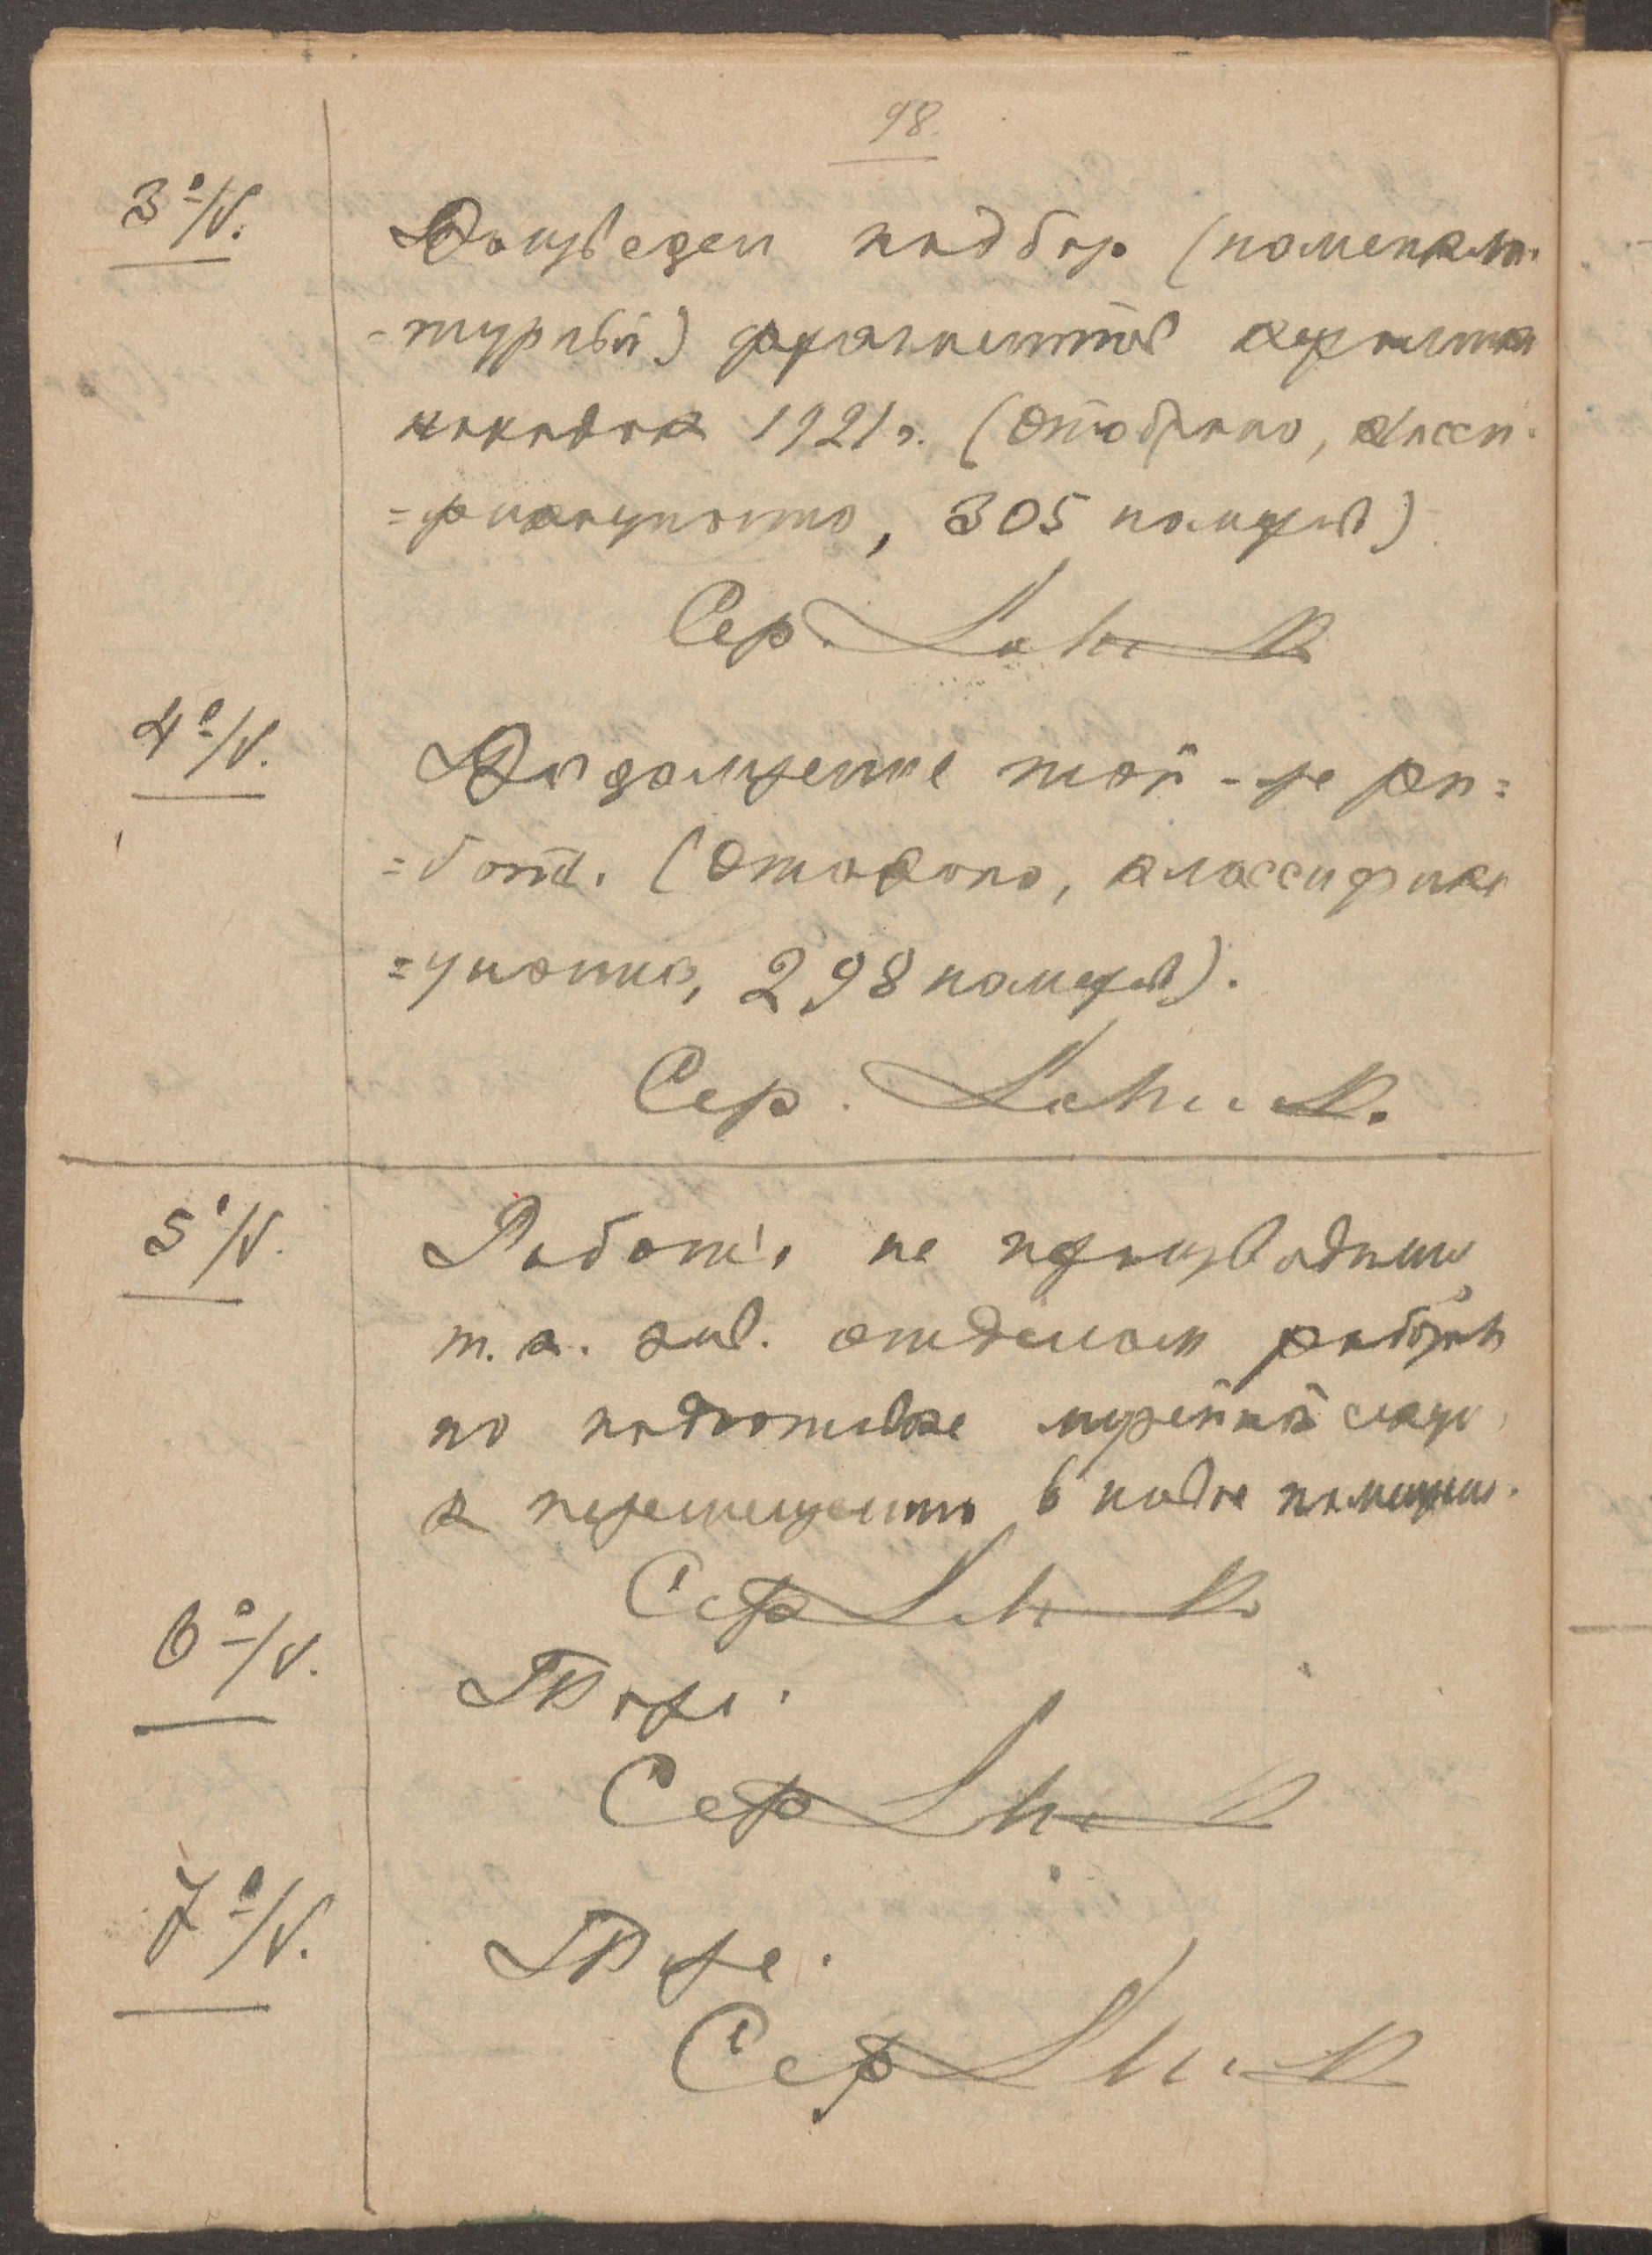 98.
3º/V.
Произведен подбор (номенкла-
-турный) фрагментов керамики
находок 1921 г. (Отобрано, класси-
=фицировано, 305 номеров)
Сер.
4º/V.
Продолжение той-же ра=
=боты. (Отобрано, классифици
298 номеров).
Сер.
5º/V.
Работы не производились
т. к. зав. отделом работал
по подготовке музейной
к перемещению в новое помещение.
Сер
6º/V.
Тоже.
Сер
7º/V.
Тоже.
Сер